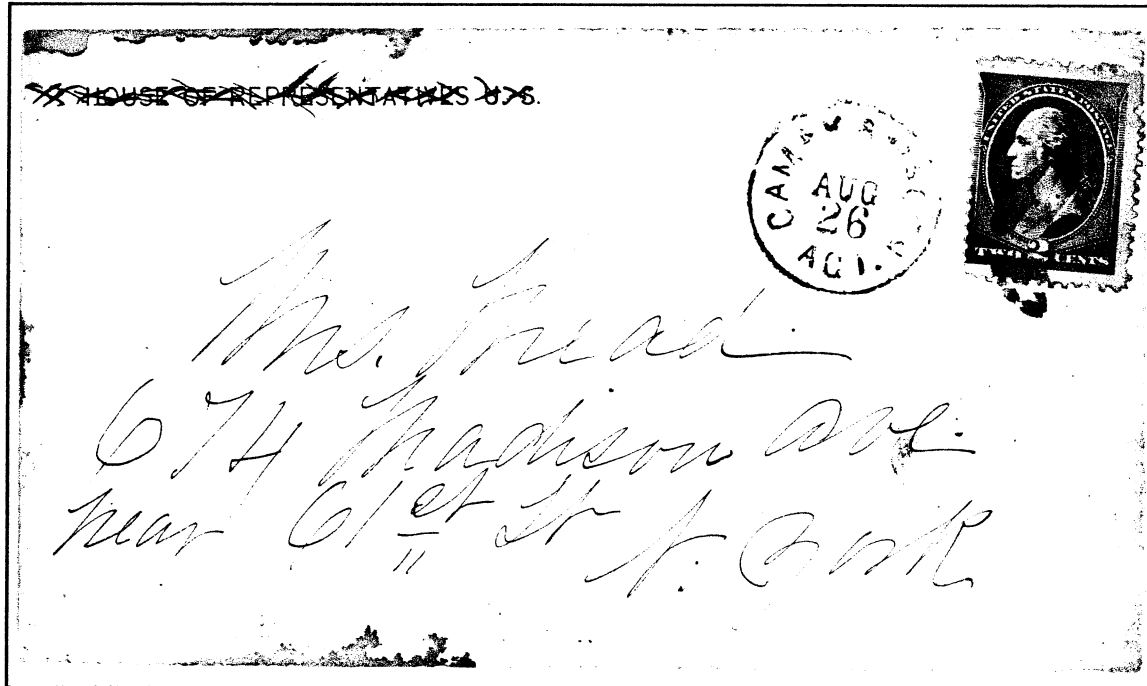 HOUSE OF REPRESENTATIVES U.S.
AUG
26
AGT.
UNITED STATES POSTAGE
2
TWO CENTS
Mrs.
674 Madison Ave.
near 61st St N. York